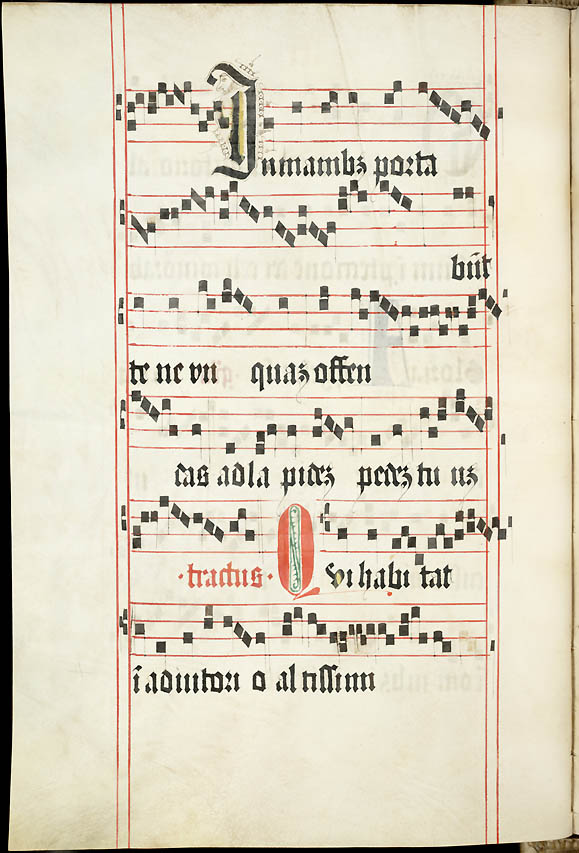 Jn manibꝫ porta
būt
te ne vn quaꝫ offen
das ad la pidēꝫ pedēꝫ tu uꝫ
·tractus· Qvi habi tat
ī adiutori o al tissimi